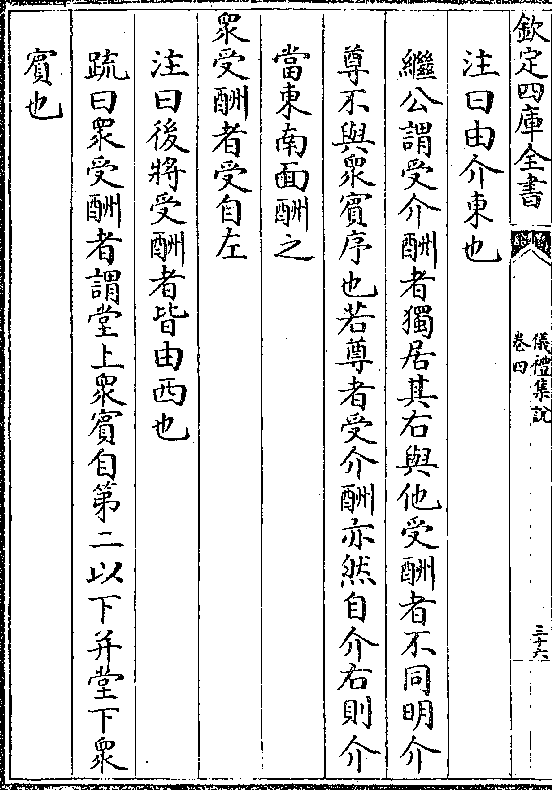 欽定四庫全書
儀禮集說
卷四
三十六
注曰由介東也
繼公謂受介酬者獨居其右與他受酬者不同明介
尊不與衆賓序也若尊者受介酬亦然自介右則介
當東南面酬之
衆受酬者受自左
注曰後將受酬者皆由西也
疏曰衆受酬者謂堂上衆賓自第二以下并堂下衆
賓也